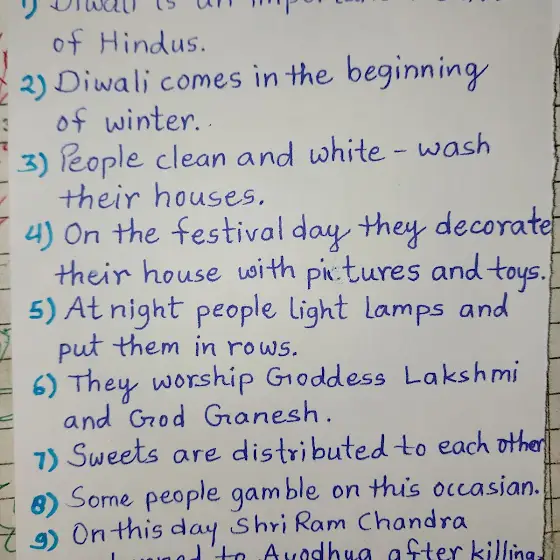 1) Diwali is an important
of Hindus.
2) Diwali comes in the beginning
of winter.
3) People clean and white - wash
their houses.
4) On the festival day they decorate
their house with pictures and toys.
5) At night people light lamps and
put them in rows.
6) They worship Goddess Lakshmi
and God Ganesh.
7) Sweets are distributed to each other
8) Some people gamble on this occasian.
9) On this day Shri Ram Chandra
to Ayodhya after killing